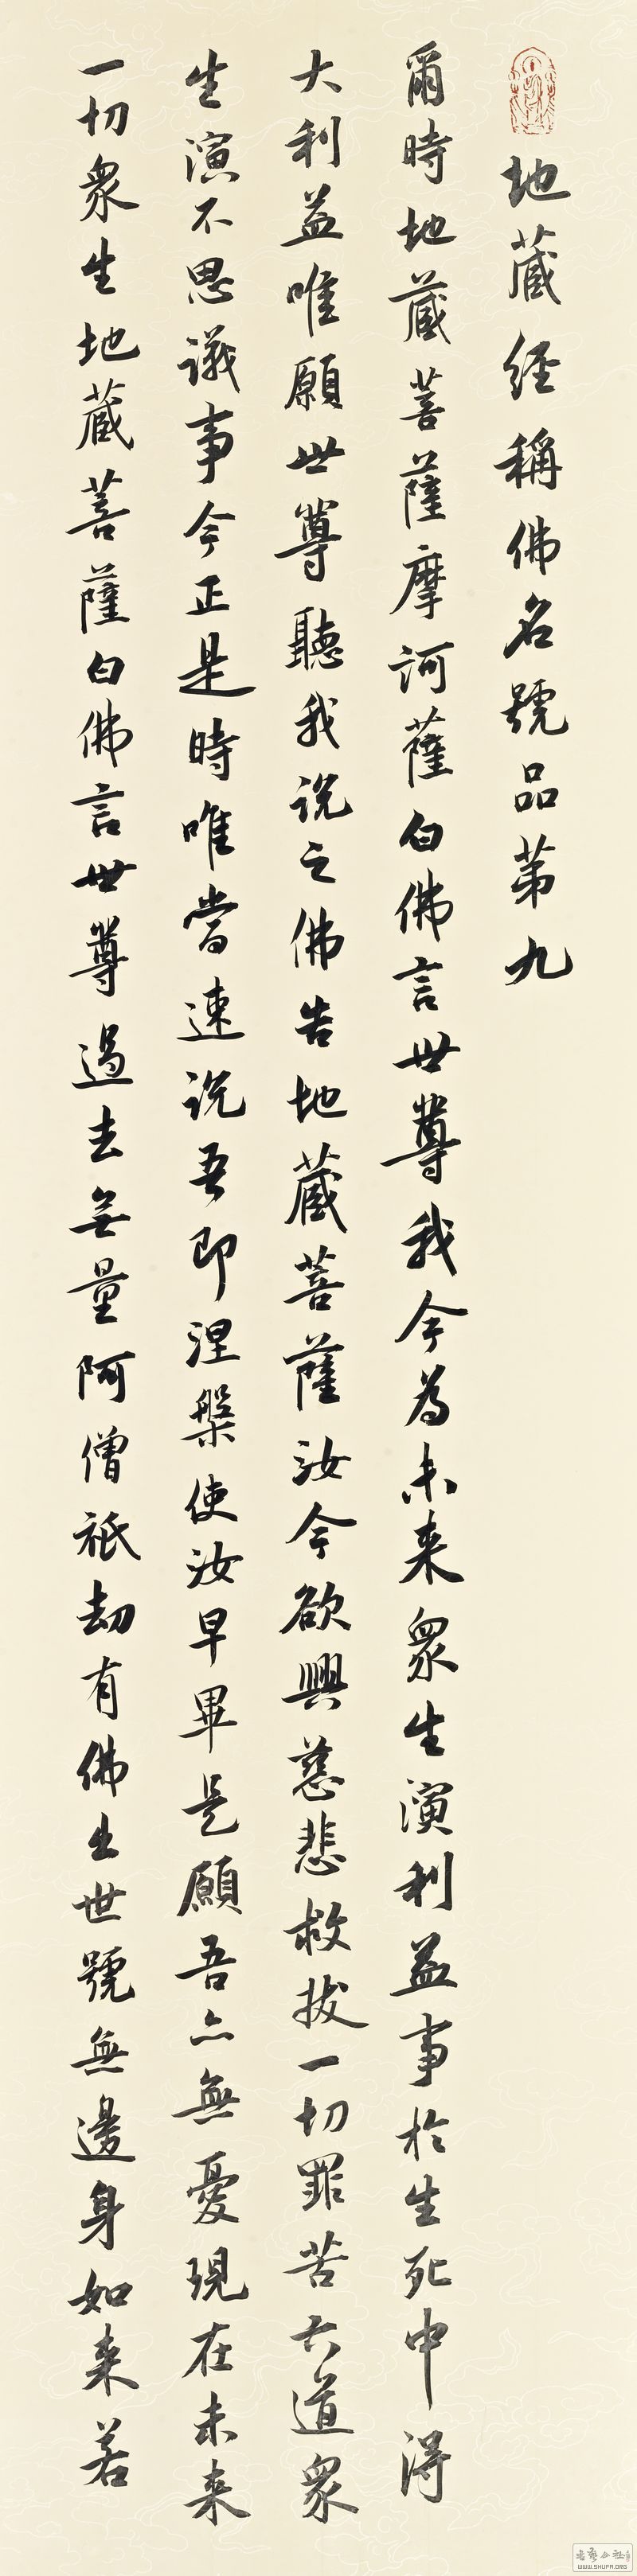 地藏經稱佛名號品第九
爾時地藏菩薩摩訶薩白佛言世尊我今為未来眾生演利益事於生死中得
大利益唯願世尊聽我説之佛告地藏菩薩汝今欲興慈悲救拔一切罪苦六道眾
生演不思議事今正是時唯當速説吾即涅槃使汝早畢是願吾亦無憂現在未来
一切眾生地藏菩薩白佛言世尊過去無量阿僧祇劫有佛出世號無邊身如来若
WWW.SHUFA.ORG